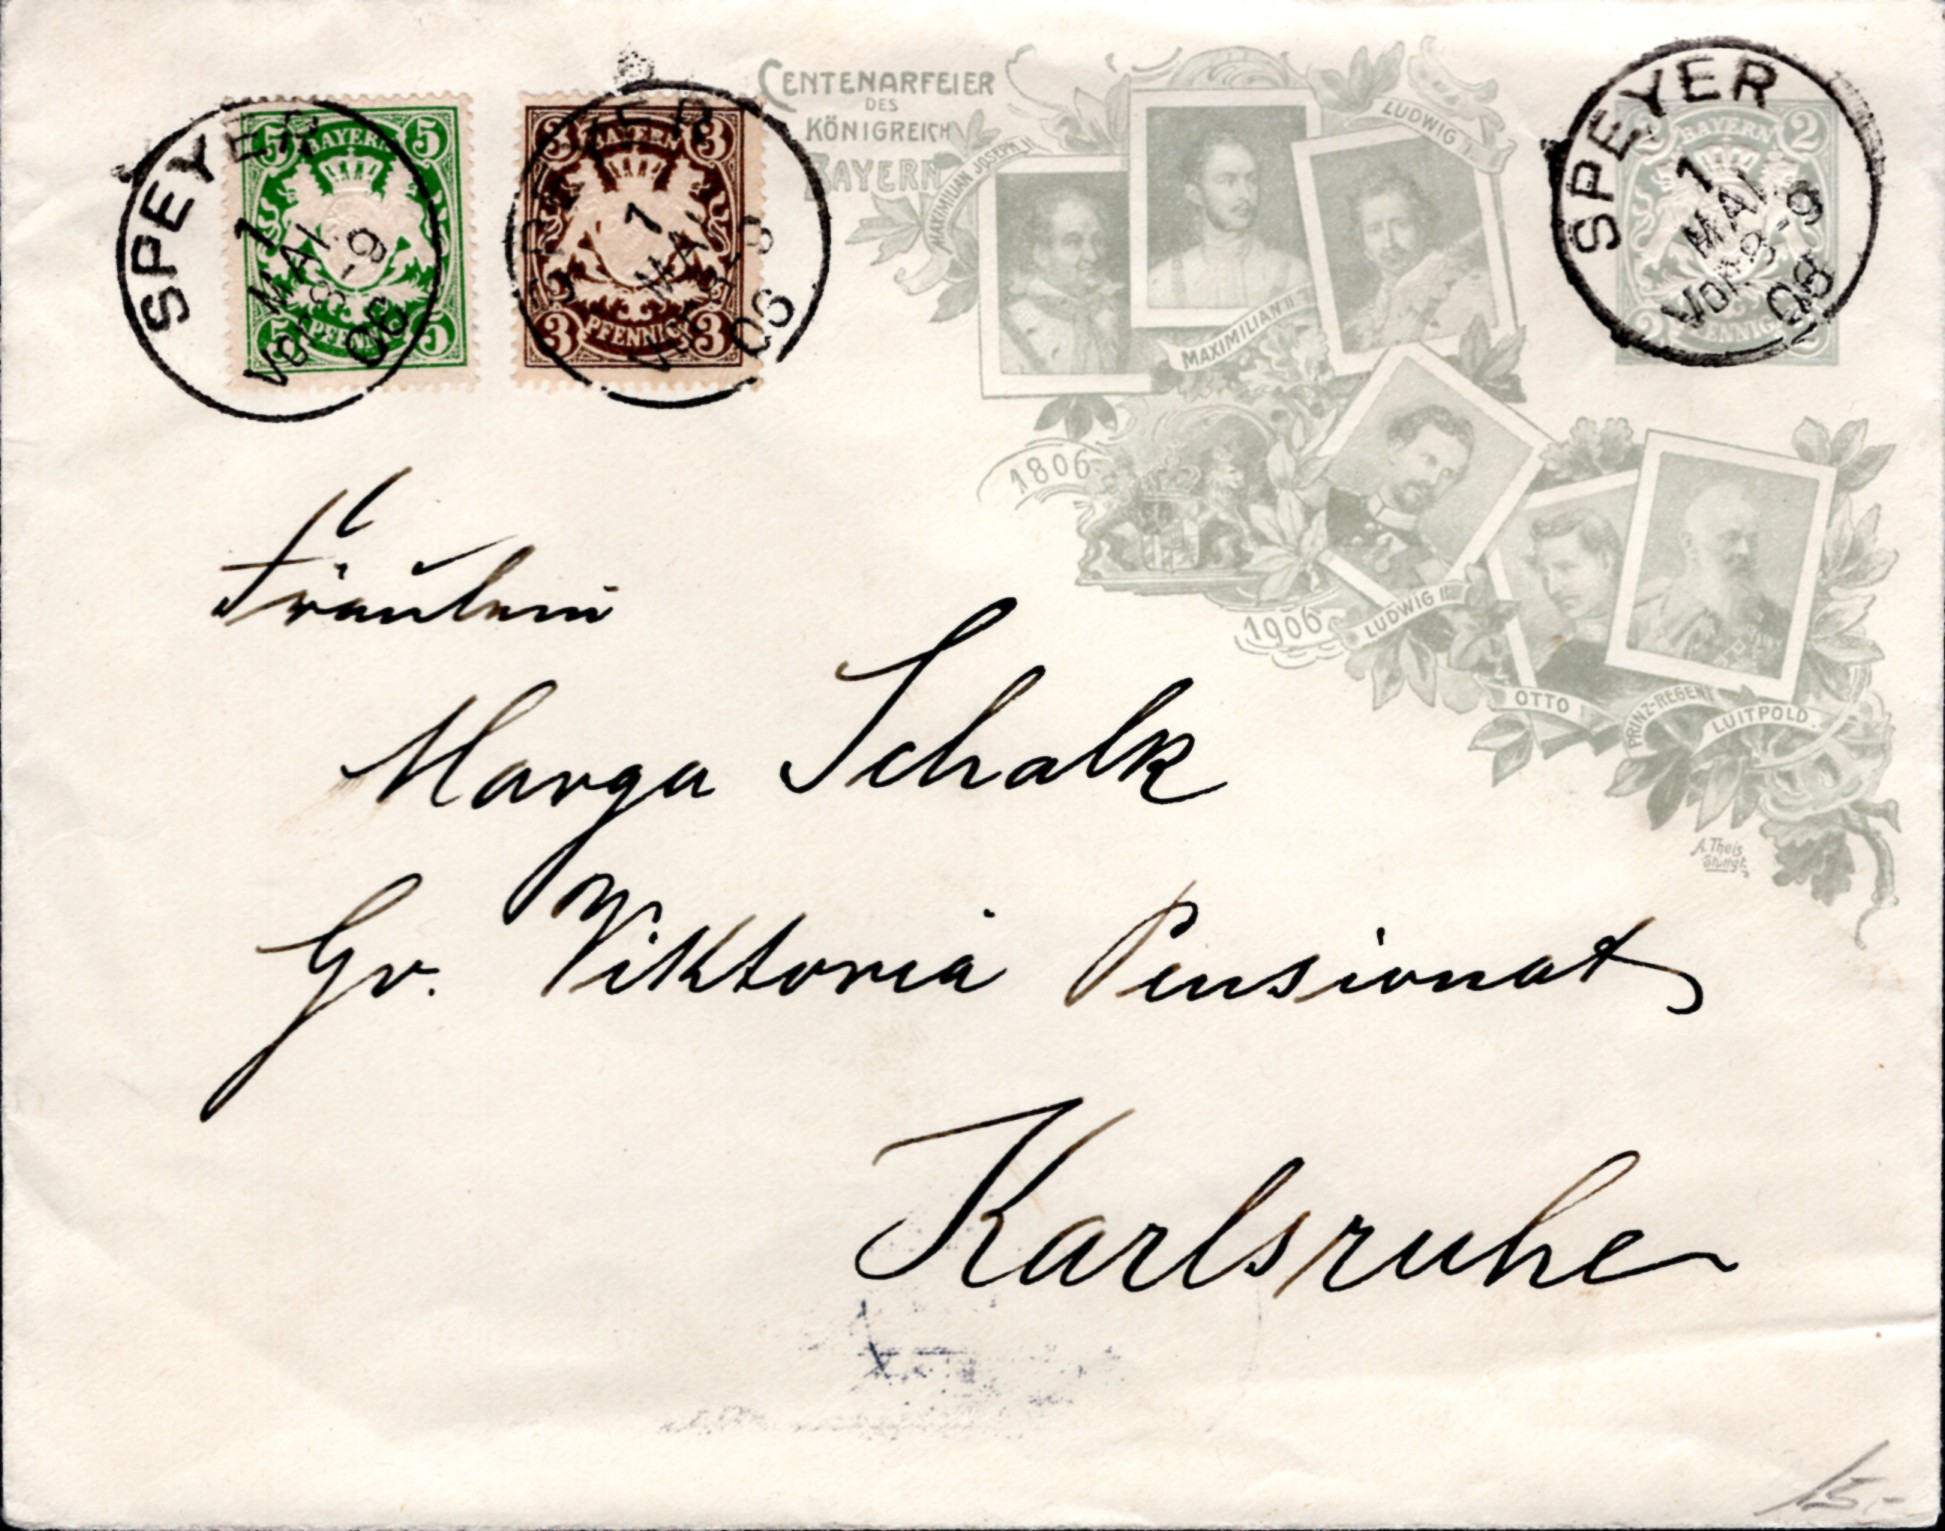 5 BAYERN 5
5 PFENNIG 5
SPEYER
1
MAI
VOR 8-9
08
3 BAYERN 3
3 PFENNIG 3
SPEYER
1
MAI
VOR 8-9
08
CENTENARFEIER
DES
KÖNIGREICH
BAYERN
MAXIMILIAN JOSEPH I.
MAXIMILIAN II.
LUDWIG I.
1806
1906
LUDWIG II.
OTTO I.
PRINZ-REGENT
LUITPOLD.
A. Theis
Stuttgt.
BAYERN 2
2 PFENNIG 2
SPEYER
1
MAI
VOR 8-9
08
Fräulein
Marga Schalk
Gr. Viktoria Pensionat
Karlsruhe
15.-